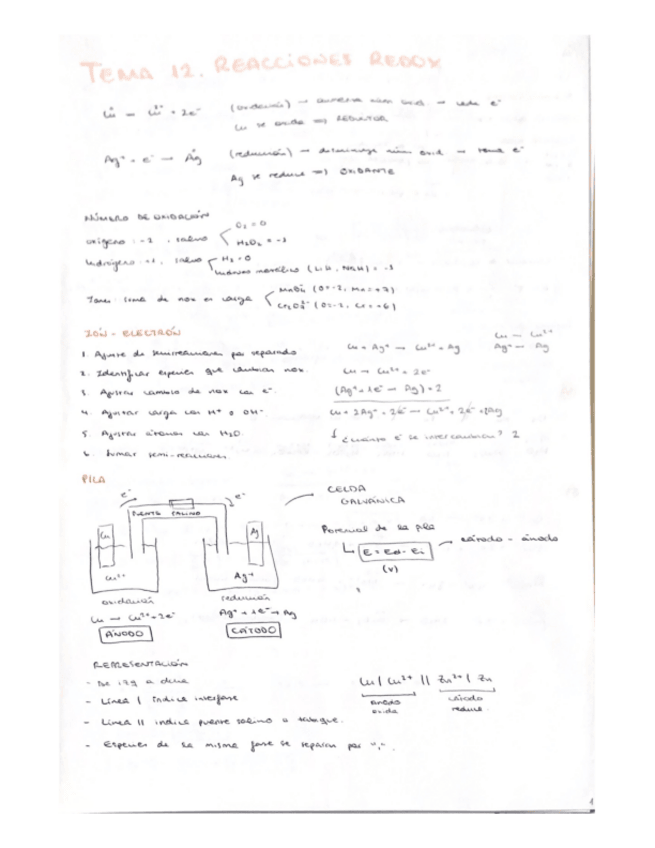 TEMA 12. REACCIONES REDOX
Cu → Cu²⁺ + 2e⁻ (oxidación) → aumenta núm oxid → cede e⁻
Cu se oxida ⇒ REDUCTOR
Ag⁺ + e⁻ → Ag (reducción) → disminuye núm oxid → toma e⁻
Ag se reduce ⇒ OXIDANTE
NÚMERO DE OXIDACIÓN
oxígeno: -2, salvo O₂ = 0
H₂O₂ = -1
hidrógeno: +1, salvo H₂ = 0
hidruro metálico (LiH, NaH) = -1
suma de nox es carga MnO₄⁻ (O=-2, Mn=+7)
(O=-2, Cr=+6)
IÓN - ELECTRÓN
1. Ajuste de semirreacciones por separado
2. Identificar especies que cambian nox.
3. Ajustar cambio de nox con e⁻.
4. Ajustar carga con H⁺ o OH⁻.
5. Ajustar átomos con H₂O.
6. Sumar semi-reacciones.
Cu + Ag⁺ → Cu²⁺ + Ag
Cu → Cu²⁺
Ag⁺ → Ag
Cu → Cu²⁺ + 2e⁻
(Ag⁺ + 1e⁻ → Ag) × 2
Cu + 2Ag⁺ + 2e⁻ → Cu²⁺ + 2e⁻ + 2Ag
¿cuántos e⁻ se intercambian? 2
PILA
e⁻ e⁻
PUENTE SALINO
Cu Ag
Cu²⁺ Ag⁺
oxidación reducción
Cu → Cu²⁺ + 2e⁻ Ag⁺ + 1e⁻ → Ag
ÁNODO CÁTODO
CELDA
GALVÁNICA
Potencial de la pila
E = Ed - Ei → cátodo - ánodo
(V)
REPRESENTACIÓN
- De izq a dcha
- Línea | indica interfase
- Línea || indica puente salino o tabique.
- Especies de la misma fase se separan por ",".
Cu | Cu²⁺ || Zn²⁺ | Zn
ánodo cátodo
oxida reduce
1